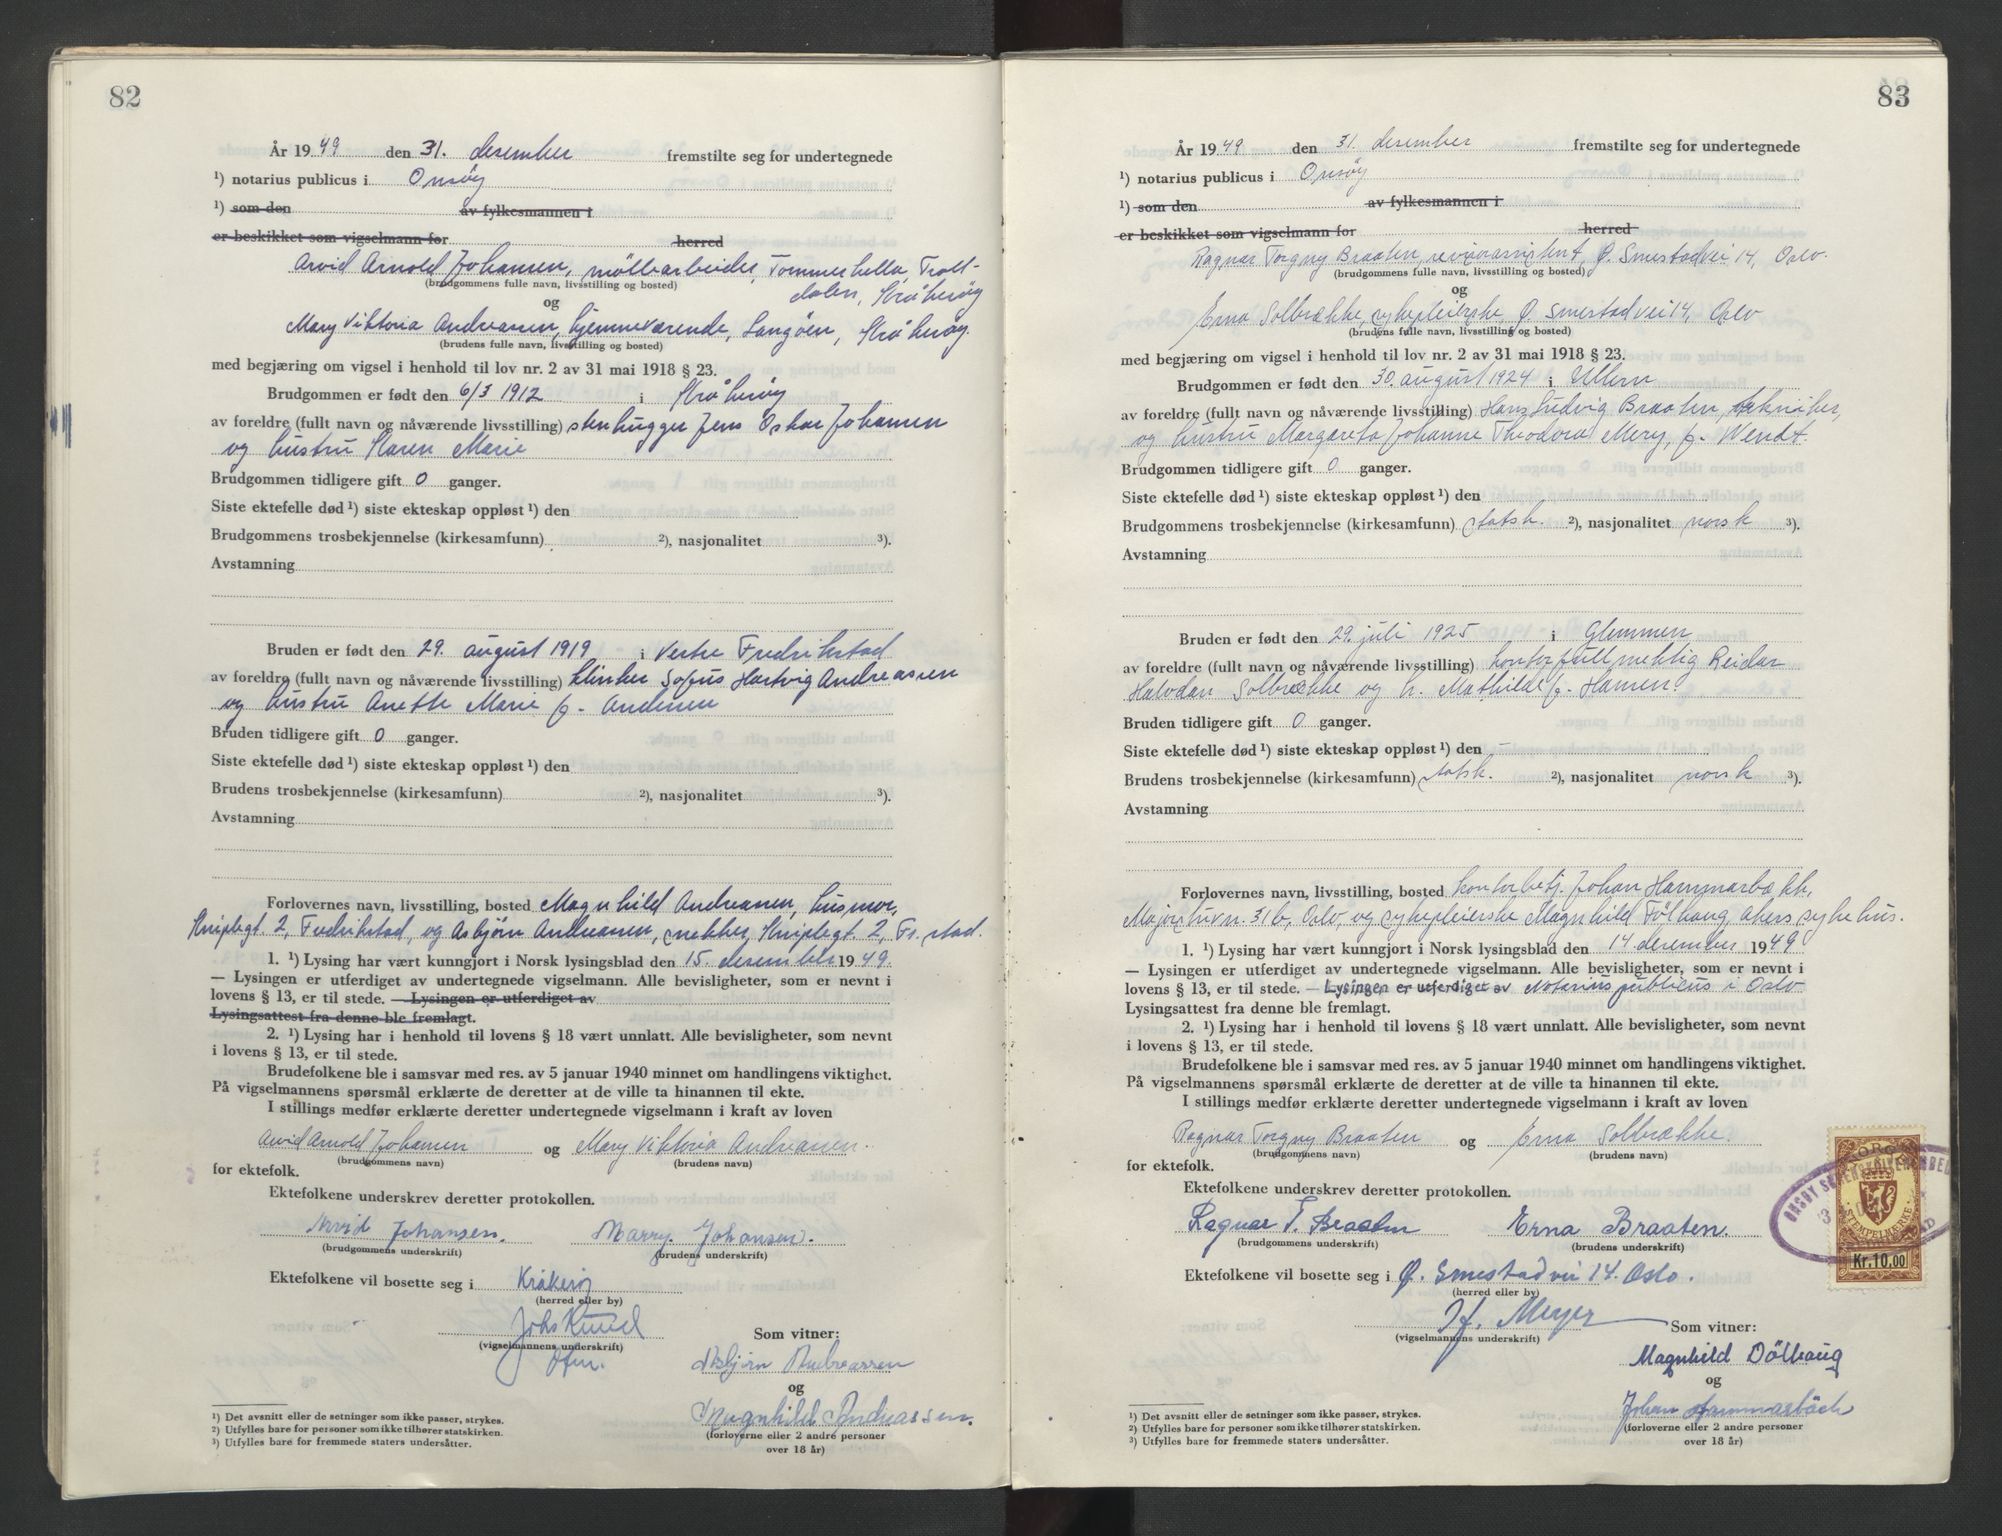 82
År 1949 den 31. desember fremstilte seg for undertegnede
¹) notarius publicus i Onsöy
¹) som den av fylkesmannen i
er beskikket som vigselmann for herred
Arvid Arnold Johansen, möllearbeider, Tommerhella, Troll-
(brudgommens fulle navn, livsstilling og bosted)
dalen, Kråkeröy
og
Mary Viktoria Andreassen, hjemmeværende, Langöen, Kråkeröy.
(brudens fulle navn, livsstilling og bosted)
med begjæring om vigsel i henhold til lov nr. 2 av 31 mai 1918 § 23.
Brudgommen er født den 6/3 1912 i Kråkeröy
av foreldre (fullt navn og nåværende livsstilling) stenhugger Jens Oskar Johansen
og hustru Karen Marie
Brudgommen tidligere gift 0 ganger.
Siste ektefelle død¹) siste ekteskap oppløst¹) den
Brudgommens trosbekjennelse (kirkesamfunn) ²), nasjonalitet ³).
Avstamning
Bruden er født den 29. august 1919 i Vestre Fredrikstad
av foreldre (fullt navn og nåværende livsstilling) klinker Sofus Hartvig Andreassen
og hustru Anette Marie f. Andersen
Bruden tidligere gift 0 ganger.
Siste ektefelle død¹) siste ekteskap oppløst¹) den
Brudens trosbekjennelse (kirkesamfunn) ²), nasjonalitet ³).
Avstamning
Forlovernes navn, livsstilling, bosted Magnhild Andreassen, husmor,
Kniplegt. 2, Fredrikstad, og Asbjörn Andreassen, snekker, Kniplegt. 2, Fr.stad.
1. ¹) Lysing har vært kunngjort i Norsk lysingsblad den 15. desember 1949.
— Lysingen er utferdiget av undertegnede vigselmann. Alle bevisligheter, som er nevnt i
lovens § 13, er til stede. — Lysingen er utferdiget av
Lysingsattest fra denne ble fremlagt.
2. ¹) Lysing har i henhold til lovens § 18 vært unnlatt. Alle bevisligheter, som nevnt
i lovens § 13, er til stede.
Brudefolkene ble i samsvar med res. av 5 januar 1940 minnet om handlingens viktighet.
På vigselmannens spørsmål erklærte de deretter at de ville ta hinannen til ekte.
I stillings medfør erklærte deretter undertegnede vigselmann i kraft av loven
Arvid Arnold Johansen og Mary Viktoria Andreassen.
(brudgommens navn) (brudens navn)
for ektefolk.
Ektefolkene underskrev deretter protokollen.
Arvid Johansen. Marry Johansen.
(brudgommens underskrift) (brudens underskrift)
Ektefolkene vil bosette seg i Kråkeröy
(herred eller by)
Johs Knud
(vigselmannens underskrift)
Som vitner:
Asbjörn Andreassen
og
Magnhild Andreassen.
(forloverne eller 2 andre personer
over 18 år)
¹) Det avsnitt eller de setninger som ikke passer, strykes.
²) Utfylles bare for personer som ikke tilhører statskirken.
³) Utfylles bare for fremmede staters undersåtter.
83
År 1949 den 31. desember fremstilte seg for undertegnede
¹) notarius publicus i Onsöy
¹) som den av fylkesmannen i
er beskikket som vigselmann for herred
Ragnar Torgny Braaten, revisorassistent, Ø. Smestadvei 14, Oslo.
(brudgommens fulle navn, livsstilling og bosted)
og
Erna Solbrække, sykepleierske, Ø. Smestadvei 14, Oslo
(brudens fulle navn, livsstilling og bosted)
med begjæring om vigsel i henhold til lov nr. 2 av 31 mai 1918 § 23.
Brudgommen er født den 30. august 1924 i Ullern
av foreldre (fullt navn og nåværende livsstilling) Hans Ludvig Braaten, tekniker,
og hustru Margareta Johanne Theodora Mery, f. Wendt.
Brudgommen tidligere gift 0 ganger.
Siste ektefelle død¹) siste ekteskap oppløst¹) den
Brudgommens trosbekjennelse (kirkesamfunn) statsk. ²), nasjonalitet norsk ³).
Avstamning
Bruden er født den 29. juli 1925 i Glemmen
av foreldre (fullt navn og nåværende livsstilling) kontorfullmektig Reidar
Halvdan Solbrække og h. Mathilde f. Hansen.
Bruden tidligere gift 0 ganger.
Siste ektefelle død¹) siste ekteskap oppløst¹) den —
Brudens trosbekjennelse (kirkesamfunn) statsk. ²), nasjonalitet norsk ³).
Avstamning
Forlovernes navn, livsstilling, bosted kontorbetj. Johan Hammarbækk,
Majorstuvn. 31b, Oslo, og sykepleierske Magnhild Fölhaug, Akers sykehus.
1. ¹) Lysing har vært kunngjort i Norsk lysingsblad den 14 desember 1949
— Lysingen er utferdiget av undertegnede vigselmann. Alle bevisligheter, som er nevnt i
lovens § 13, er til stede. — Lysingen er utferdiget av Notarius publicus i Oslo
Lysingsattest fra denne ble fremlagt.
2. ¹) Lysing har i henhold til lovens § 18 vært unnlatt. Alle bevisligheter, som nevnt
i lovens § 13, er til stede.
Brudefolkene ble i samsvar med res. av 5 januar 1940 minnet om handlingens viktighet.
På vigselmannens spørsmål erklærte de deretter at de ville ta hinannen til ekte.
I stillings medfør erklærte deretter undertegnede vigselmann i kraft av loven
Ragnar Torgny Braaten og Erna Solbrække.
(brudgommens navn) (brudens navn)
for ektefolk.
Ektefolkene underskrev deretter protokollen.
Ragnar T. Braaten Erna Braaten.
(brudgommens underskrift) (brudens underskrift)
Ektefolkene vil bosette seg i Ø. Smestadvei 14. Oslo.
(herred eller by)
Meyer
(vigselmannens underskrift)
Som vitner:
Magnhild Dölhaug
og
Johan Hammarbäck
(forloverne eller 2 andre personer
over 18 år)
NORGE
STEMPELMERKE
Kr.10,00
¹) Det avsnitt eller de setninger som ikke passer, strykes.
²) Utfylles bare for personer som ikke tilhører statskirken.
³) Utfylles bare for fremmede staters undersåtter.